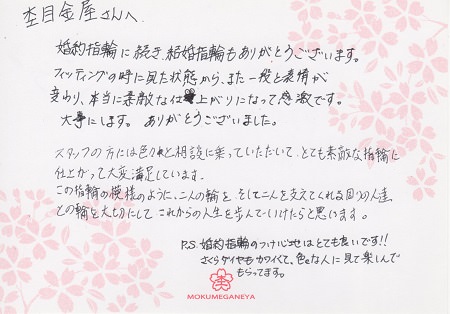 杢目金屋さんへ
婚約指輪に続き、結婚指輪もありがとうございます。
フィッティングの時に見た状態から、また一段と表情が
変わり、本当に素敵な仕上がりになって感激です。
大事にします。ありがとうございました。
スタッフの方には色々と相談に乗っていただいて、とても素敵な指輪に
仕上がって大変満足しています。
この指輪の模様のように、二人の輪を、そして二人を支えてくれる回りの人達
との輪を大切にして、これからの人生を歩んでいけたらと思います。
P.S. 婚約指輪のつけ心地はとても良いです!!
さくらダイヤもカワイくて、色んな人に見て楽しんで
もらってます。
MOKUMEGANEYA